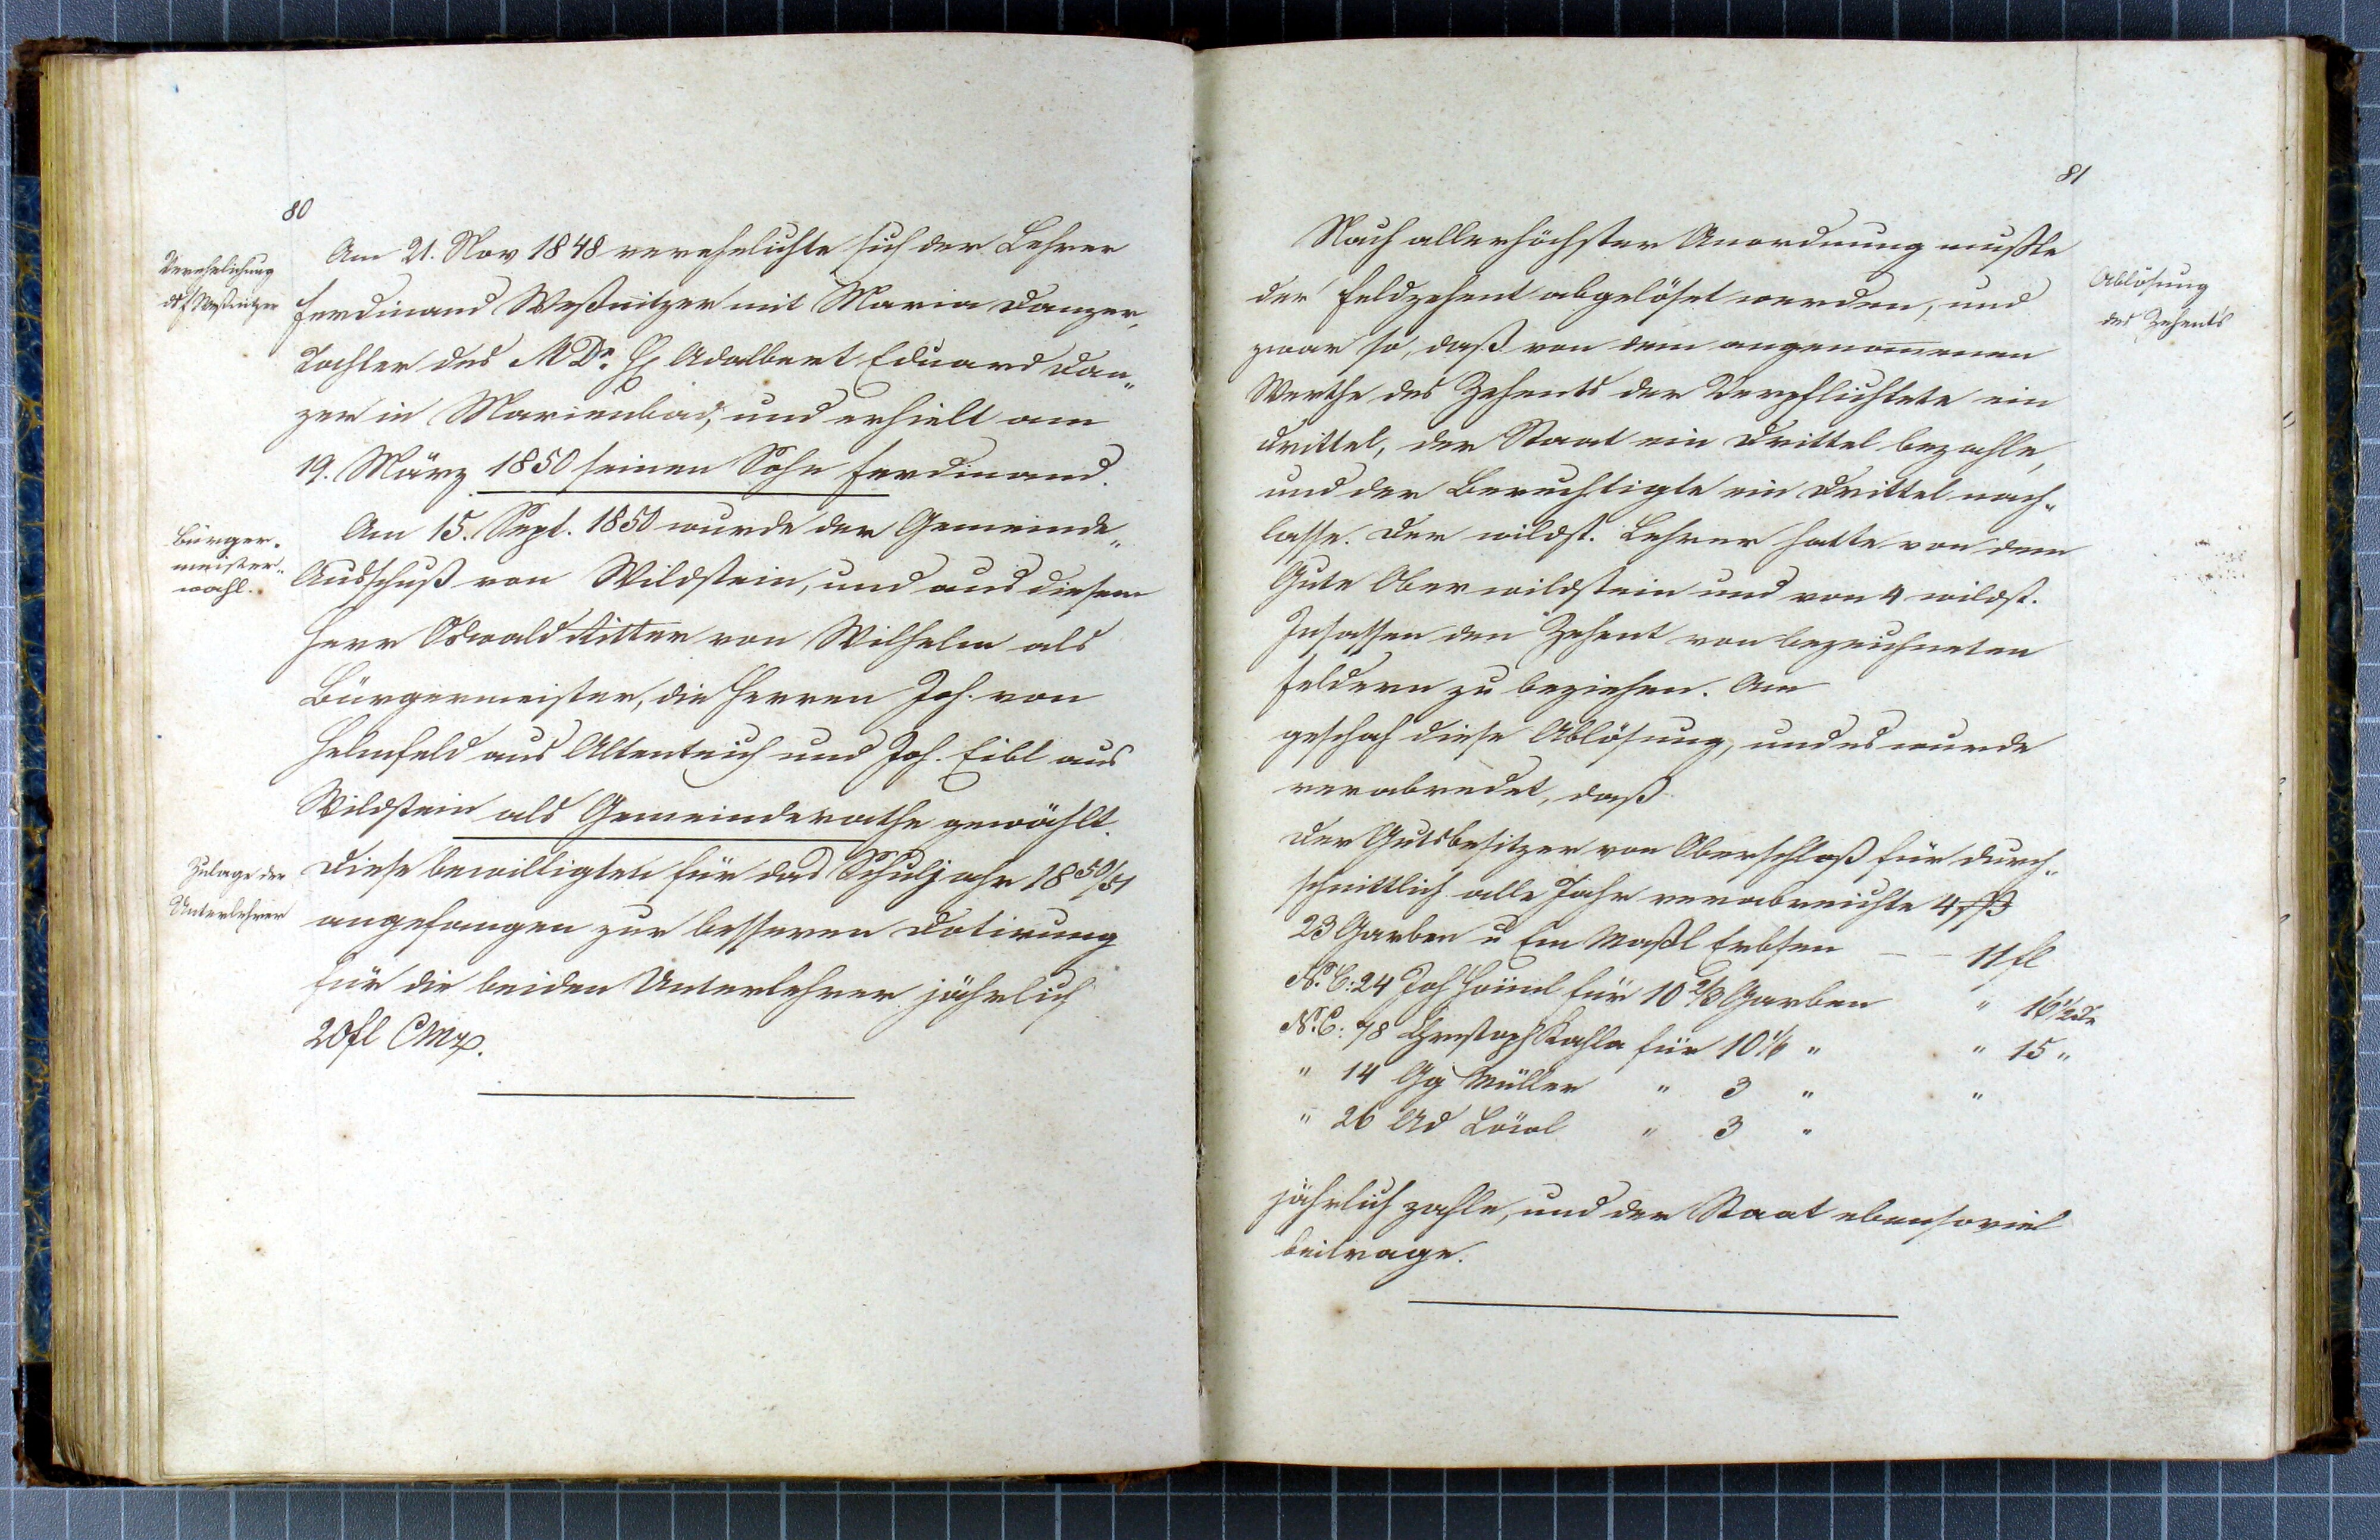 80
Verehelichung
des Weßnitzer
Am 21. Nov 1848 verehelichte sich der Lehrer
Ferdinand Weßnitzer mit Maria Danzer,
Tochter des MDr. H Adalbert Eduard Dan„
zer in Marienbad, und erhielt am
19. März 1850 seinen Sohn Ferdinand.
Bürger„
meister„
wahl.
Am 15. Sept. 1850 wurde der Gemeinde„
Ausschuß von Wildstein, und aus diesem
Herr Oswald Ritter von Wilhelm als
Bürgermeister, die Herren Joh. von
Helmfeld aus Altenteich und Joh. Eibl aus
Wildstein als Gemeinderathe gewählt.
Zulage der
Unterlehrer
Diese bewilligten für das Schuljahr 1850/51
angefangen zur besseren Dotirung
für die beiden Unterlehrer jährlich
20fl CMz.
81
Ablösung
des Zehents
Nach allerhöchster Anordnung mußte
der Feldzehent abgelöset werden, und
zwar so, daß von dem angenomenen
Werthe des Zehents der Verpflichtete ein
Drittel, der Staat ein Drittel bezahle,
und der Berechtigte ein Drittel nach„
lasse. Der wildst. Lehrer hatte von dem
Gute Oberwildstein und von 4 wildst.
Insassen den Zehent von bezeichneten
Feldern zu beziehen. Am
geschah diese Ablösung, und es wurde
verabredet, daß
Der Gutsbesitzer von Oberschloß für durch„
schnittlich alle Jahr verabreichte 4
23 Garben u Ein Maßl Erbsen — — 11 fl
N.C: 24 Joh für 10 2/3 Garben " 16 1/2
N.C: 78 Christoph Kahla für 10 1/6 " " 15 "
" 14 Gg Müller " 3 " "
" 26 Ad " 3 "
jährlich zahle, und der Staat ebensoviel
beitrage.